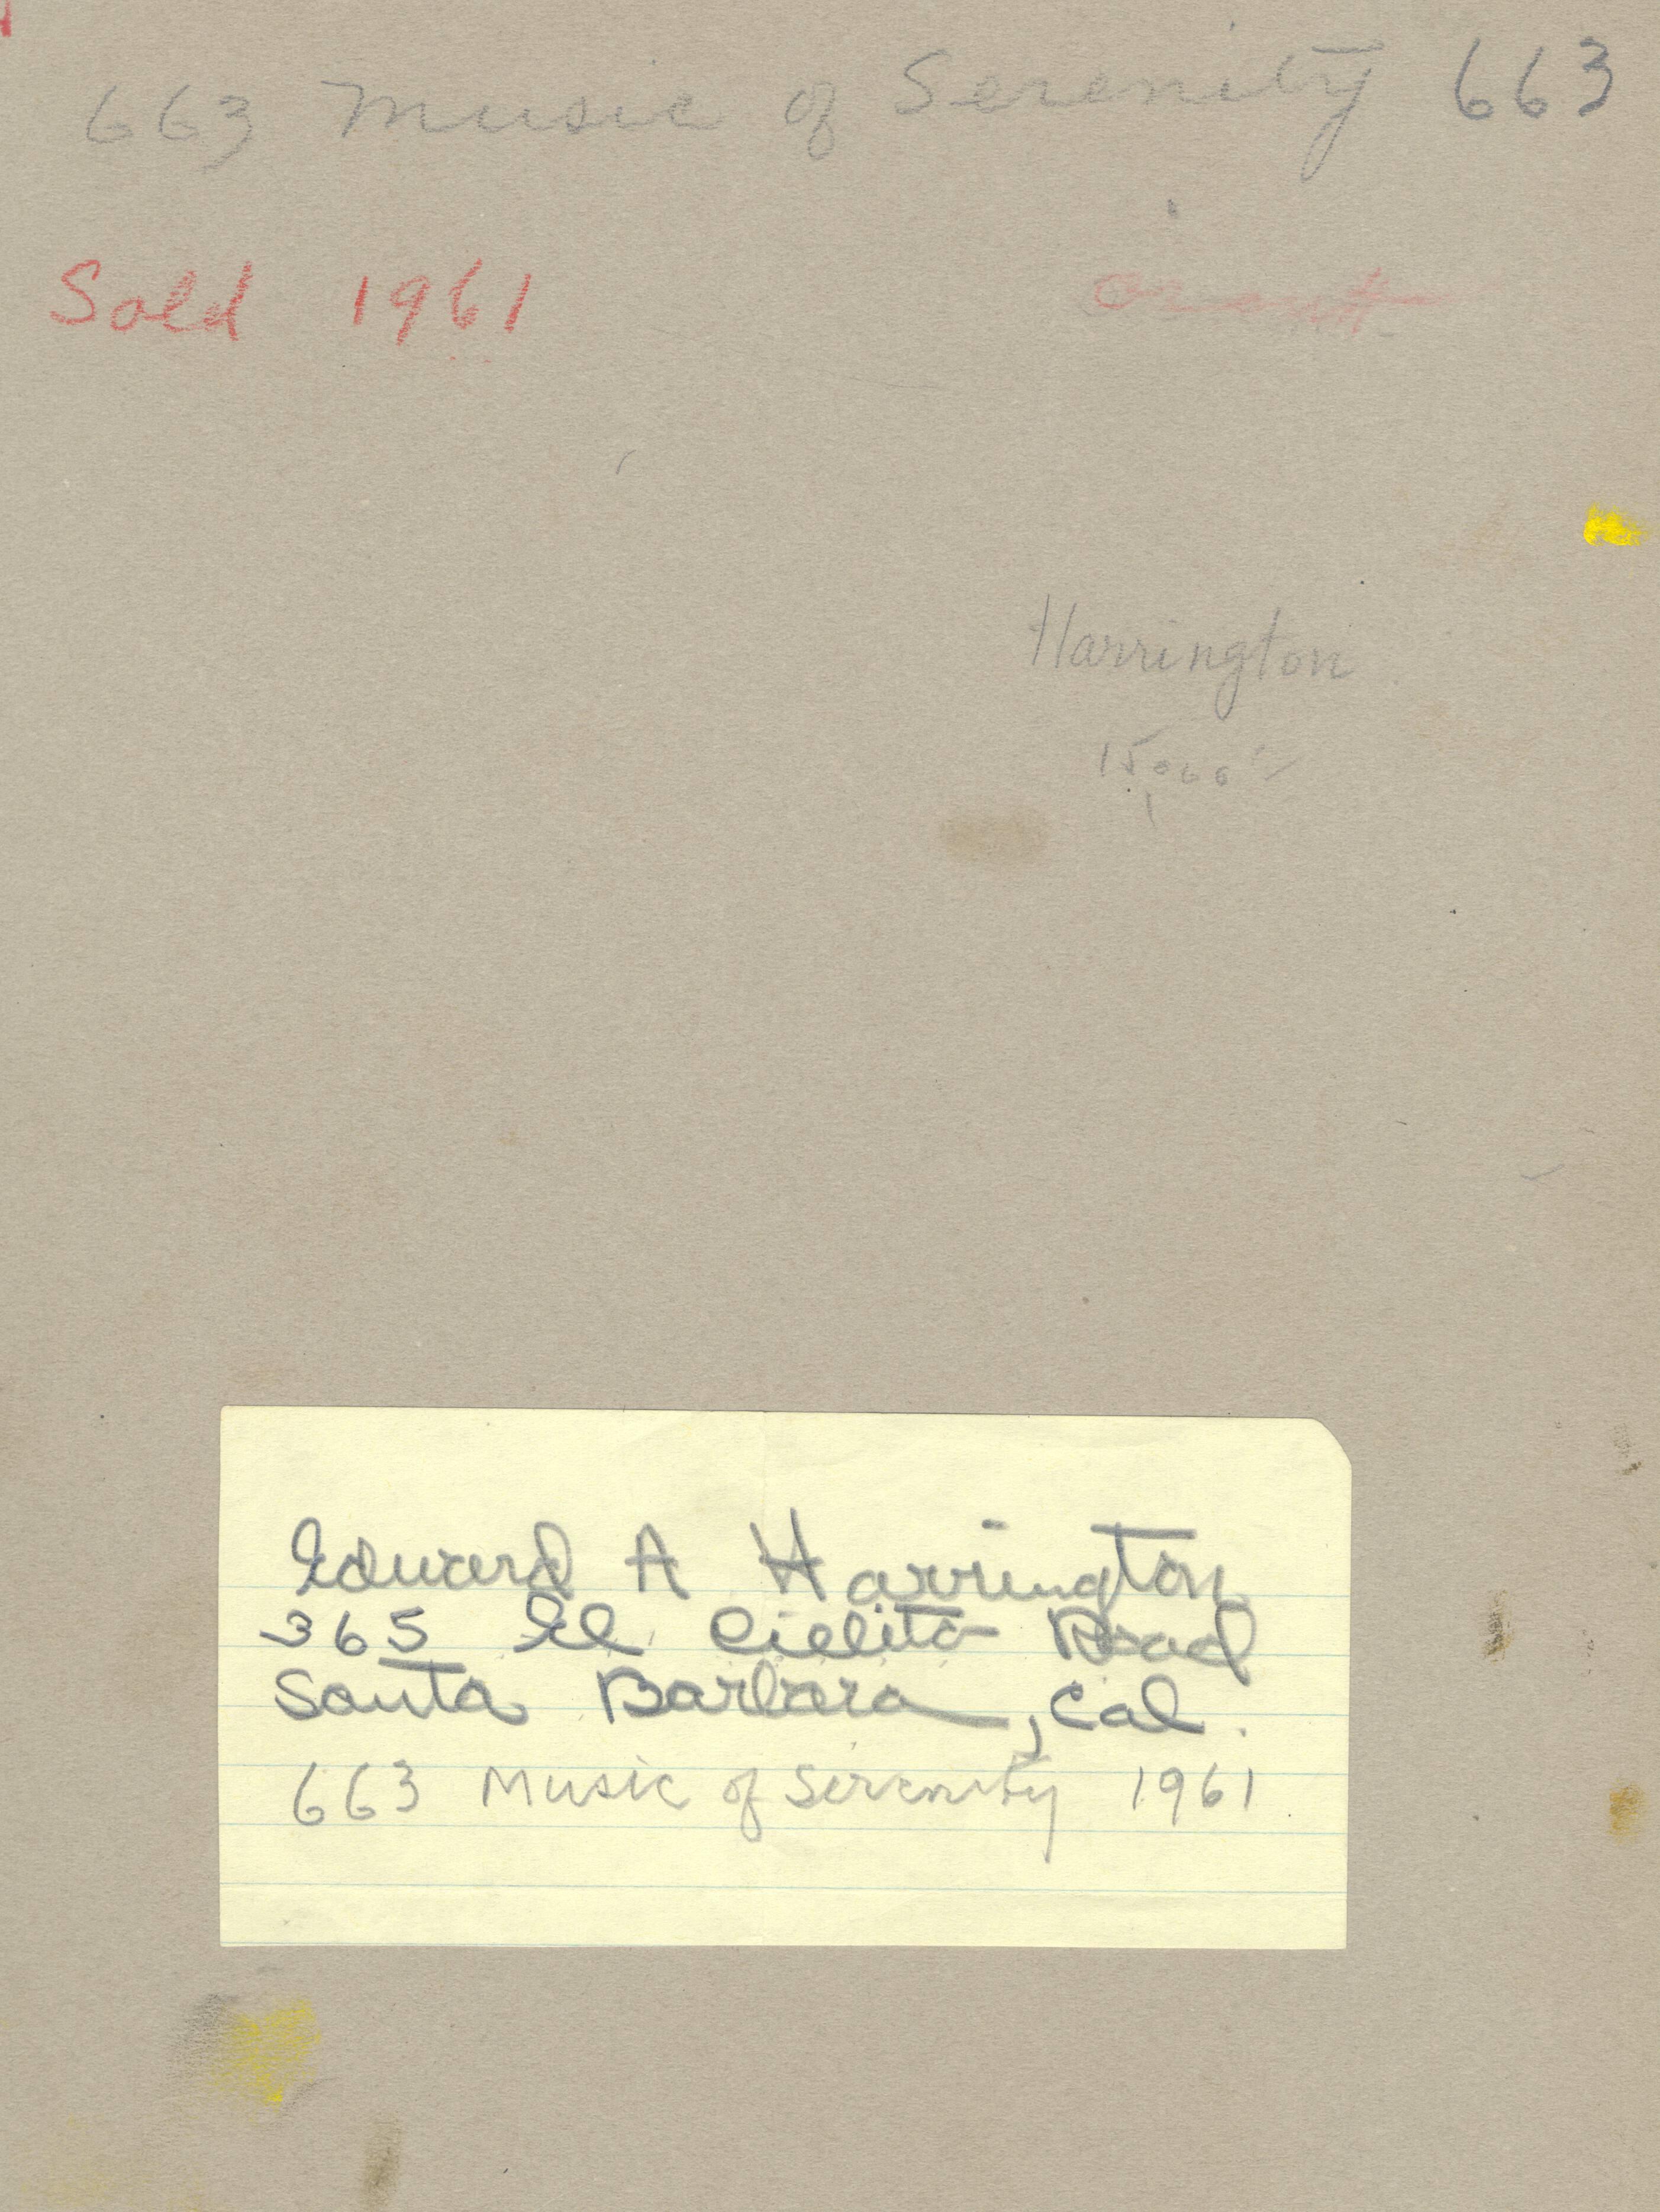 663 Music of Serenity 663
Sold 1961
Harrington
Edward A Harrington
365 El Cielito Road
Santa Barbara, Cal.
663 Music of Serenity 1961